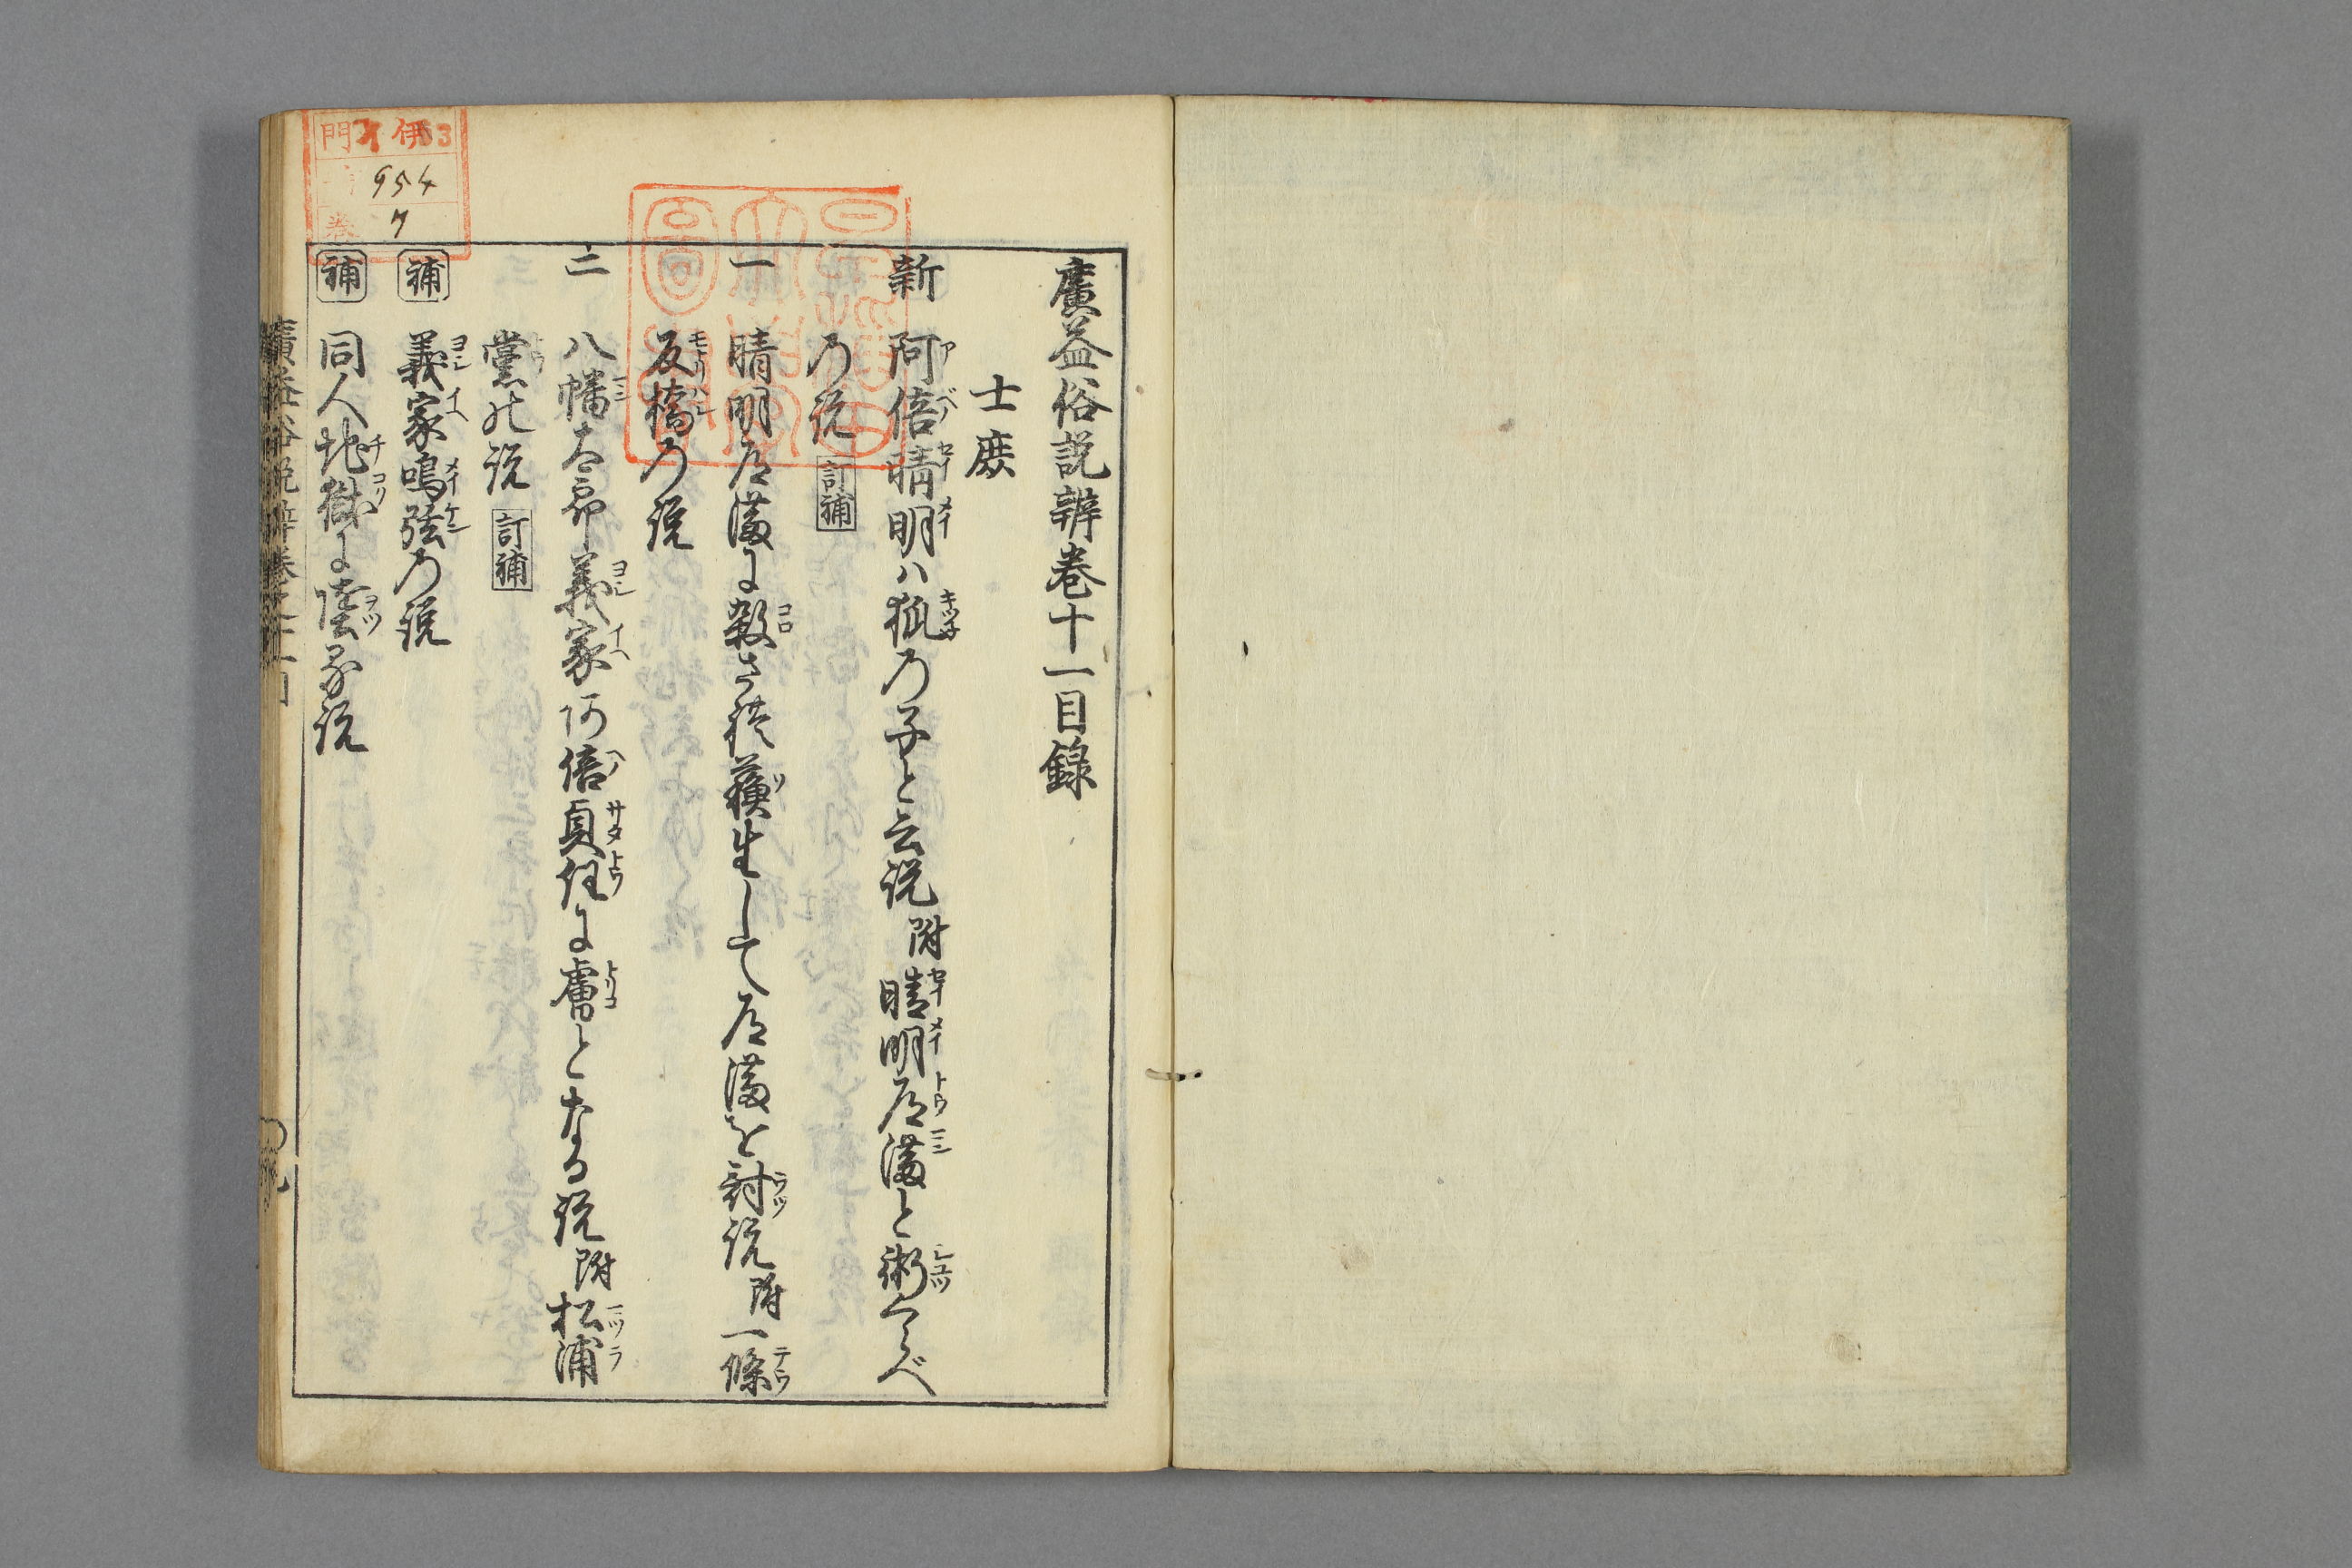 廣益俗説辨巻十一目録
士庶
新 阿倍晴明ハ狐の子と云説 附 晴明道満と術くらべ
の説 訂補
一 晴明道満に殺され蘓生して道満を討説 附 一條
反橋の説
二 八幡太郎義家阿倍貞任に虜となる説 附 松浦
黨の説 訂補
補 義家鳴弦の説
補 同人地獄に堕る説
廣益俗説辨巻之十一目
門 伊
954
巻 7